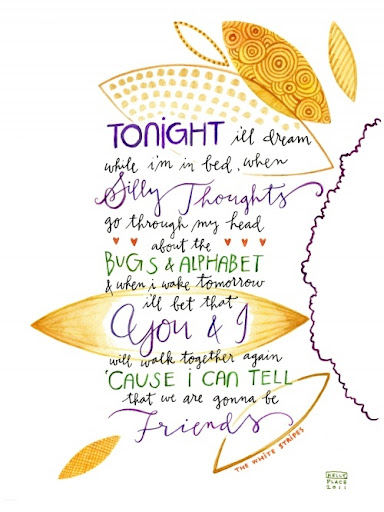 TONIGHT ill dream
while i'm in bed, when
Silly Thoughts
go through my head
about the
BUGS & ALPHABET
& when i wake tomorrow
i'll bet that
You & I
will walk together again
'CAUSE I CAN TELL
that we are gonna be
Friends
THE WHITE STRIPES
KELLE
PLACE
2011